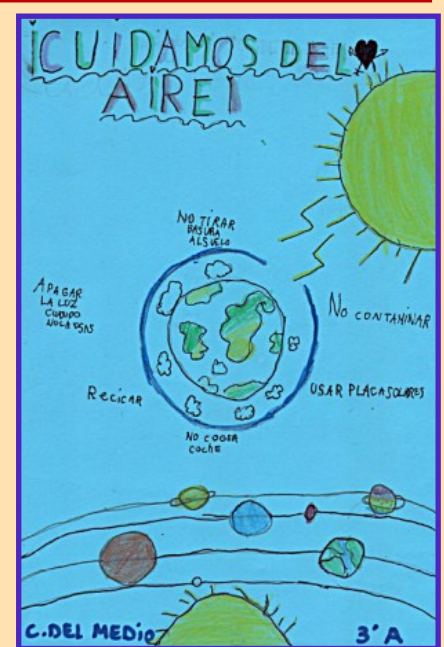 ¡CUIDAMOS DEL
AIRE!
NO TIRAR
BASURA
AL SUELO
APAGAR
LA LUZ
CUANDO
NO LA USAS
NO CONTAMINAR
RECICAR
USAR PLACASOLARES
NO COGER
COCHE
C.DEL MEDIO
3°A